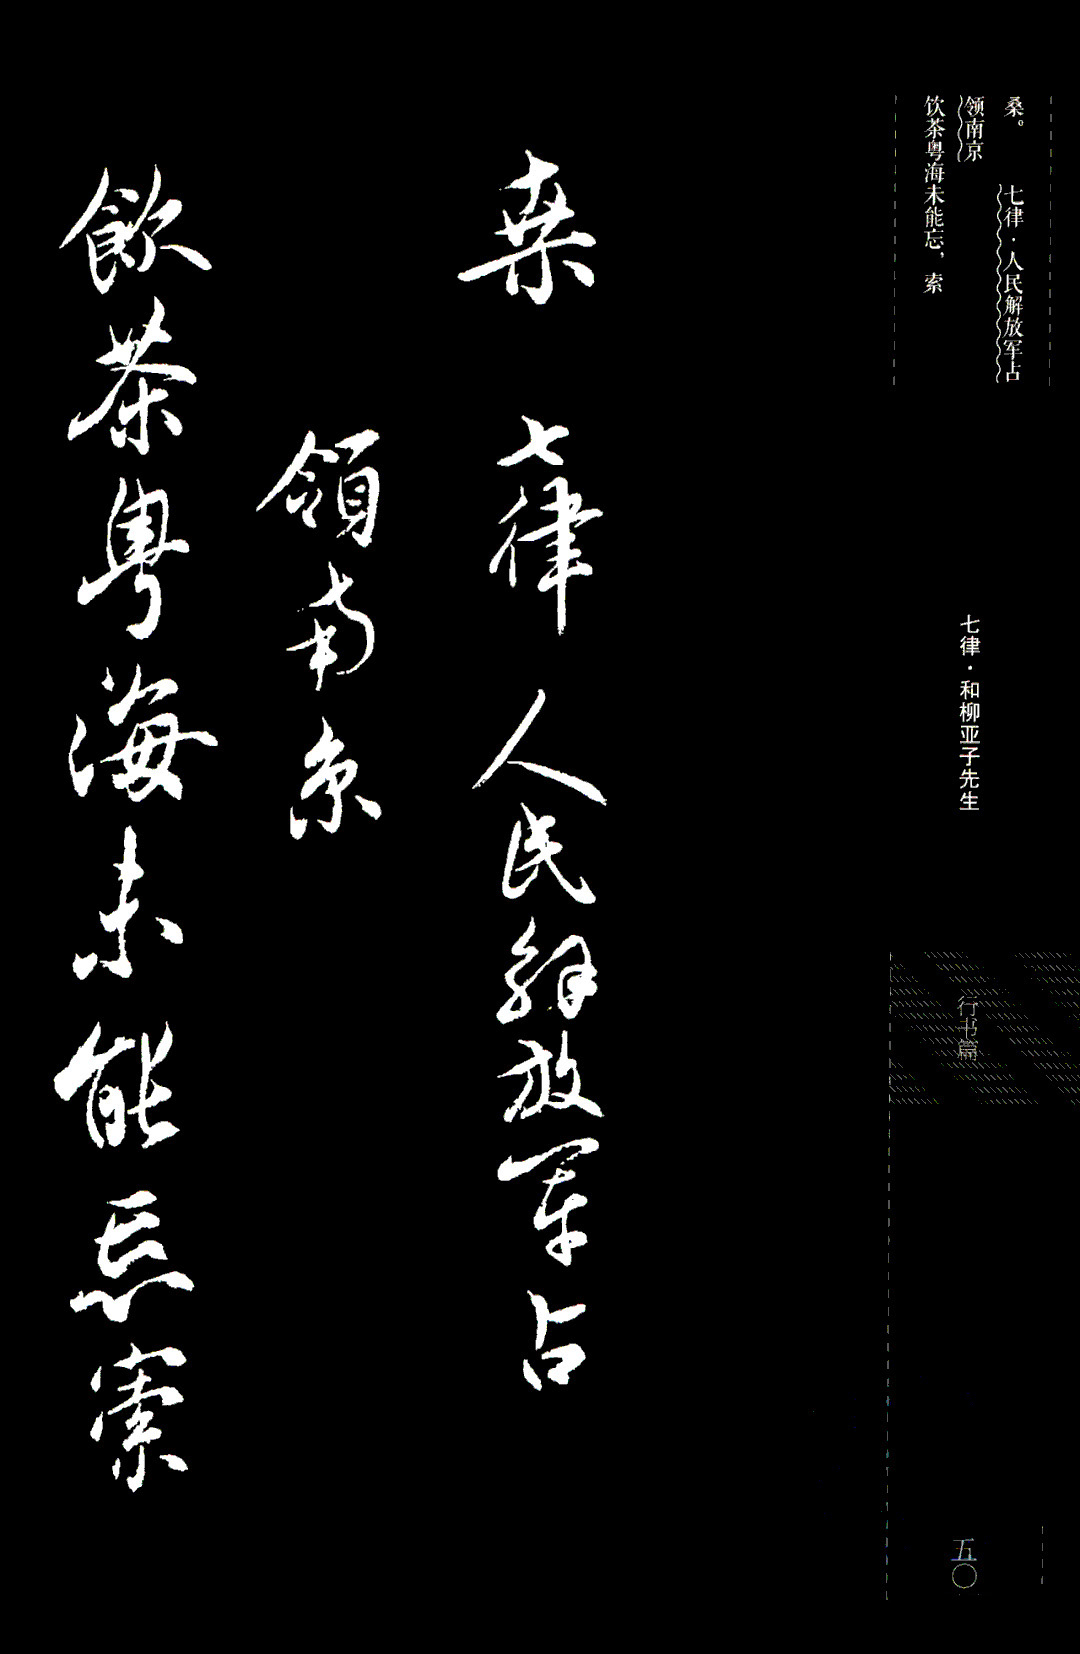 桑。 七律·人民解放军占
领南京
饮茶粤海未能忘，索
七律·和柳亚子先生
行书篇
五〇
桒 七律 人民解放军占
領南京
飲茶粤海未能忘索